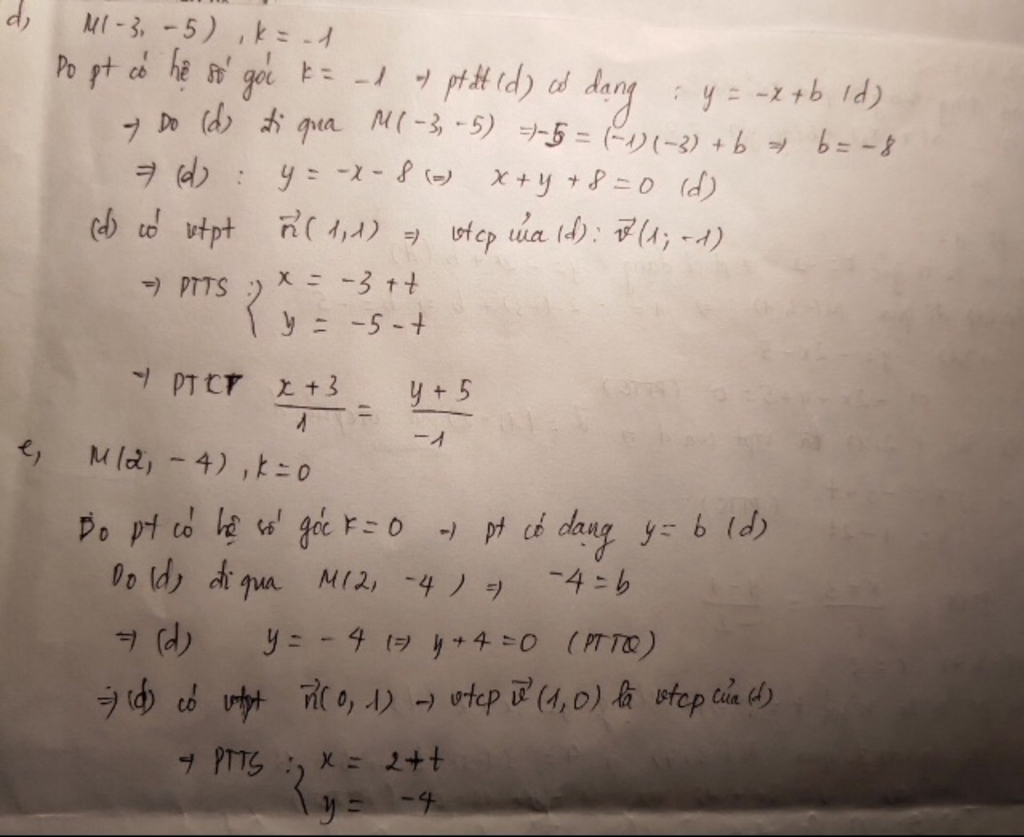 d, M(-3, -5), k = -1
Do pt có hệ số góc k = -1 → ptđt (d) có dạng : y = -x + b (d)
→ Do (d) đi qua M(-3, -5) ⇒ -5 = (-1)(-3) + b ⇒ b = -8
⇒ (d) : y = -x - 8 (=) x + y + 8 = 0 (d)
(d) có vtpt n⃗(1,1) ⇒ vtcp của (d): v⃗(1; -1)
⇒ PTTS : { x = -3 + t
y = -5 - t
→ PTCT x + 3 / 1 = y + 5 / -1
e, M(2, -4), k = 0
Do pt có hệ số góc k = 0 → pt có dạng y = b (d)
Do (d) đi qua M(2, -4) ⇒ -4 = b
⇒ (d) y = -4 (=) y + 4 = 0 (PTTQ)
⇒ (d) có vtpt n⃗(0, 1) → vtcp v⃗(1,0) là vtcp của (d)
→ PTTS : { x = 2 + t
y = -4